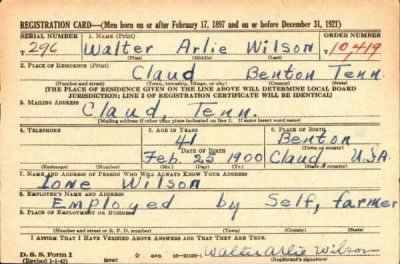 REGISTRATION CARD—(Men born on or after February 17, 1897 and on or before December 31, 1921)
SERIAL NUMBER 1. NAME (Print) ORDER NUMBER
T 296 Walter Arlie Wilson 10,419
(First) (Middle) (Last)
2. PLACE OF RESIDENCE (Print)
Claud Benton Tenn.
(Number and street) (Town, township, village, or city) (County) (State)
[THE PLACE OF RESIDENCE GIVEN ON THE LINE ABOVE WILL DETERMINE LOCAL BOARD
JURISDICTION; LINE 2 OF REGISTRATION CERTIFICATE WILL BE IDENTICAL]
3. MAILING ADDRESS
Claud Tenn.
[Mailing address if other than place indicated on line 2. If same insert word same]
4. TELEPHONE 5. AGE IN YEARS 6. PLACE OF BIRTH
41 Benton
DATE OF BIRTH (Town or county)
Feb. 25 1900 Claud, U.S.A.
(Exchange) (Number) (Mo.) (Day) (Yr.) (State or country)
7. NAME AND ADDRESS OF PERSON WHO WILL ALWAYS KNOW YOUR ADDRESS
Ione Wilson
8. EMPLOYER'S NAME AND ADDRESS
Employed by Self, farmer
9. PLACE OF EMPLOYMENT OR BUSINESS
(Number and street or R. F. D. number) (Town) (County) (State)
I AFFIRM THAT I HAVE VERIFIED ABOVE ANSWERS AND THAT THEY ARE TRUE.
D. S. S. Form 1 Walter Arlie Wilson
(Revised 1-1-42) (Registrant's signature)